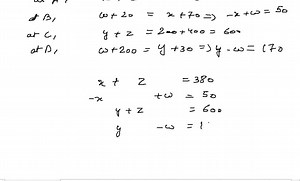 at B, w + 20 = x + 70 => -x + w = 50
at C, y + z = 200 + 400 = 600
at D, w + 200 = y + 30 => y - w = 170
x + z = 380
-x + w = 50
y + z = 600
y - w = 1